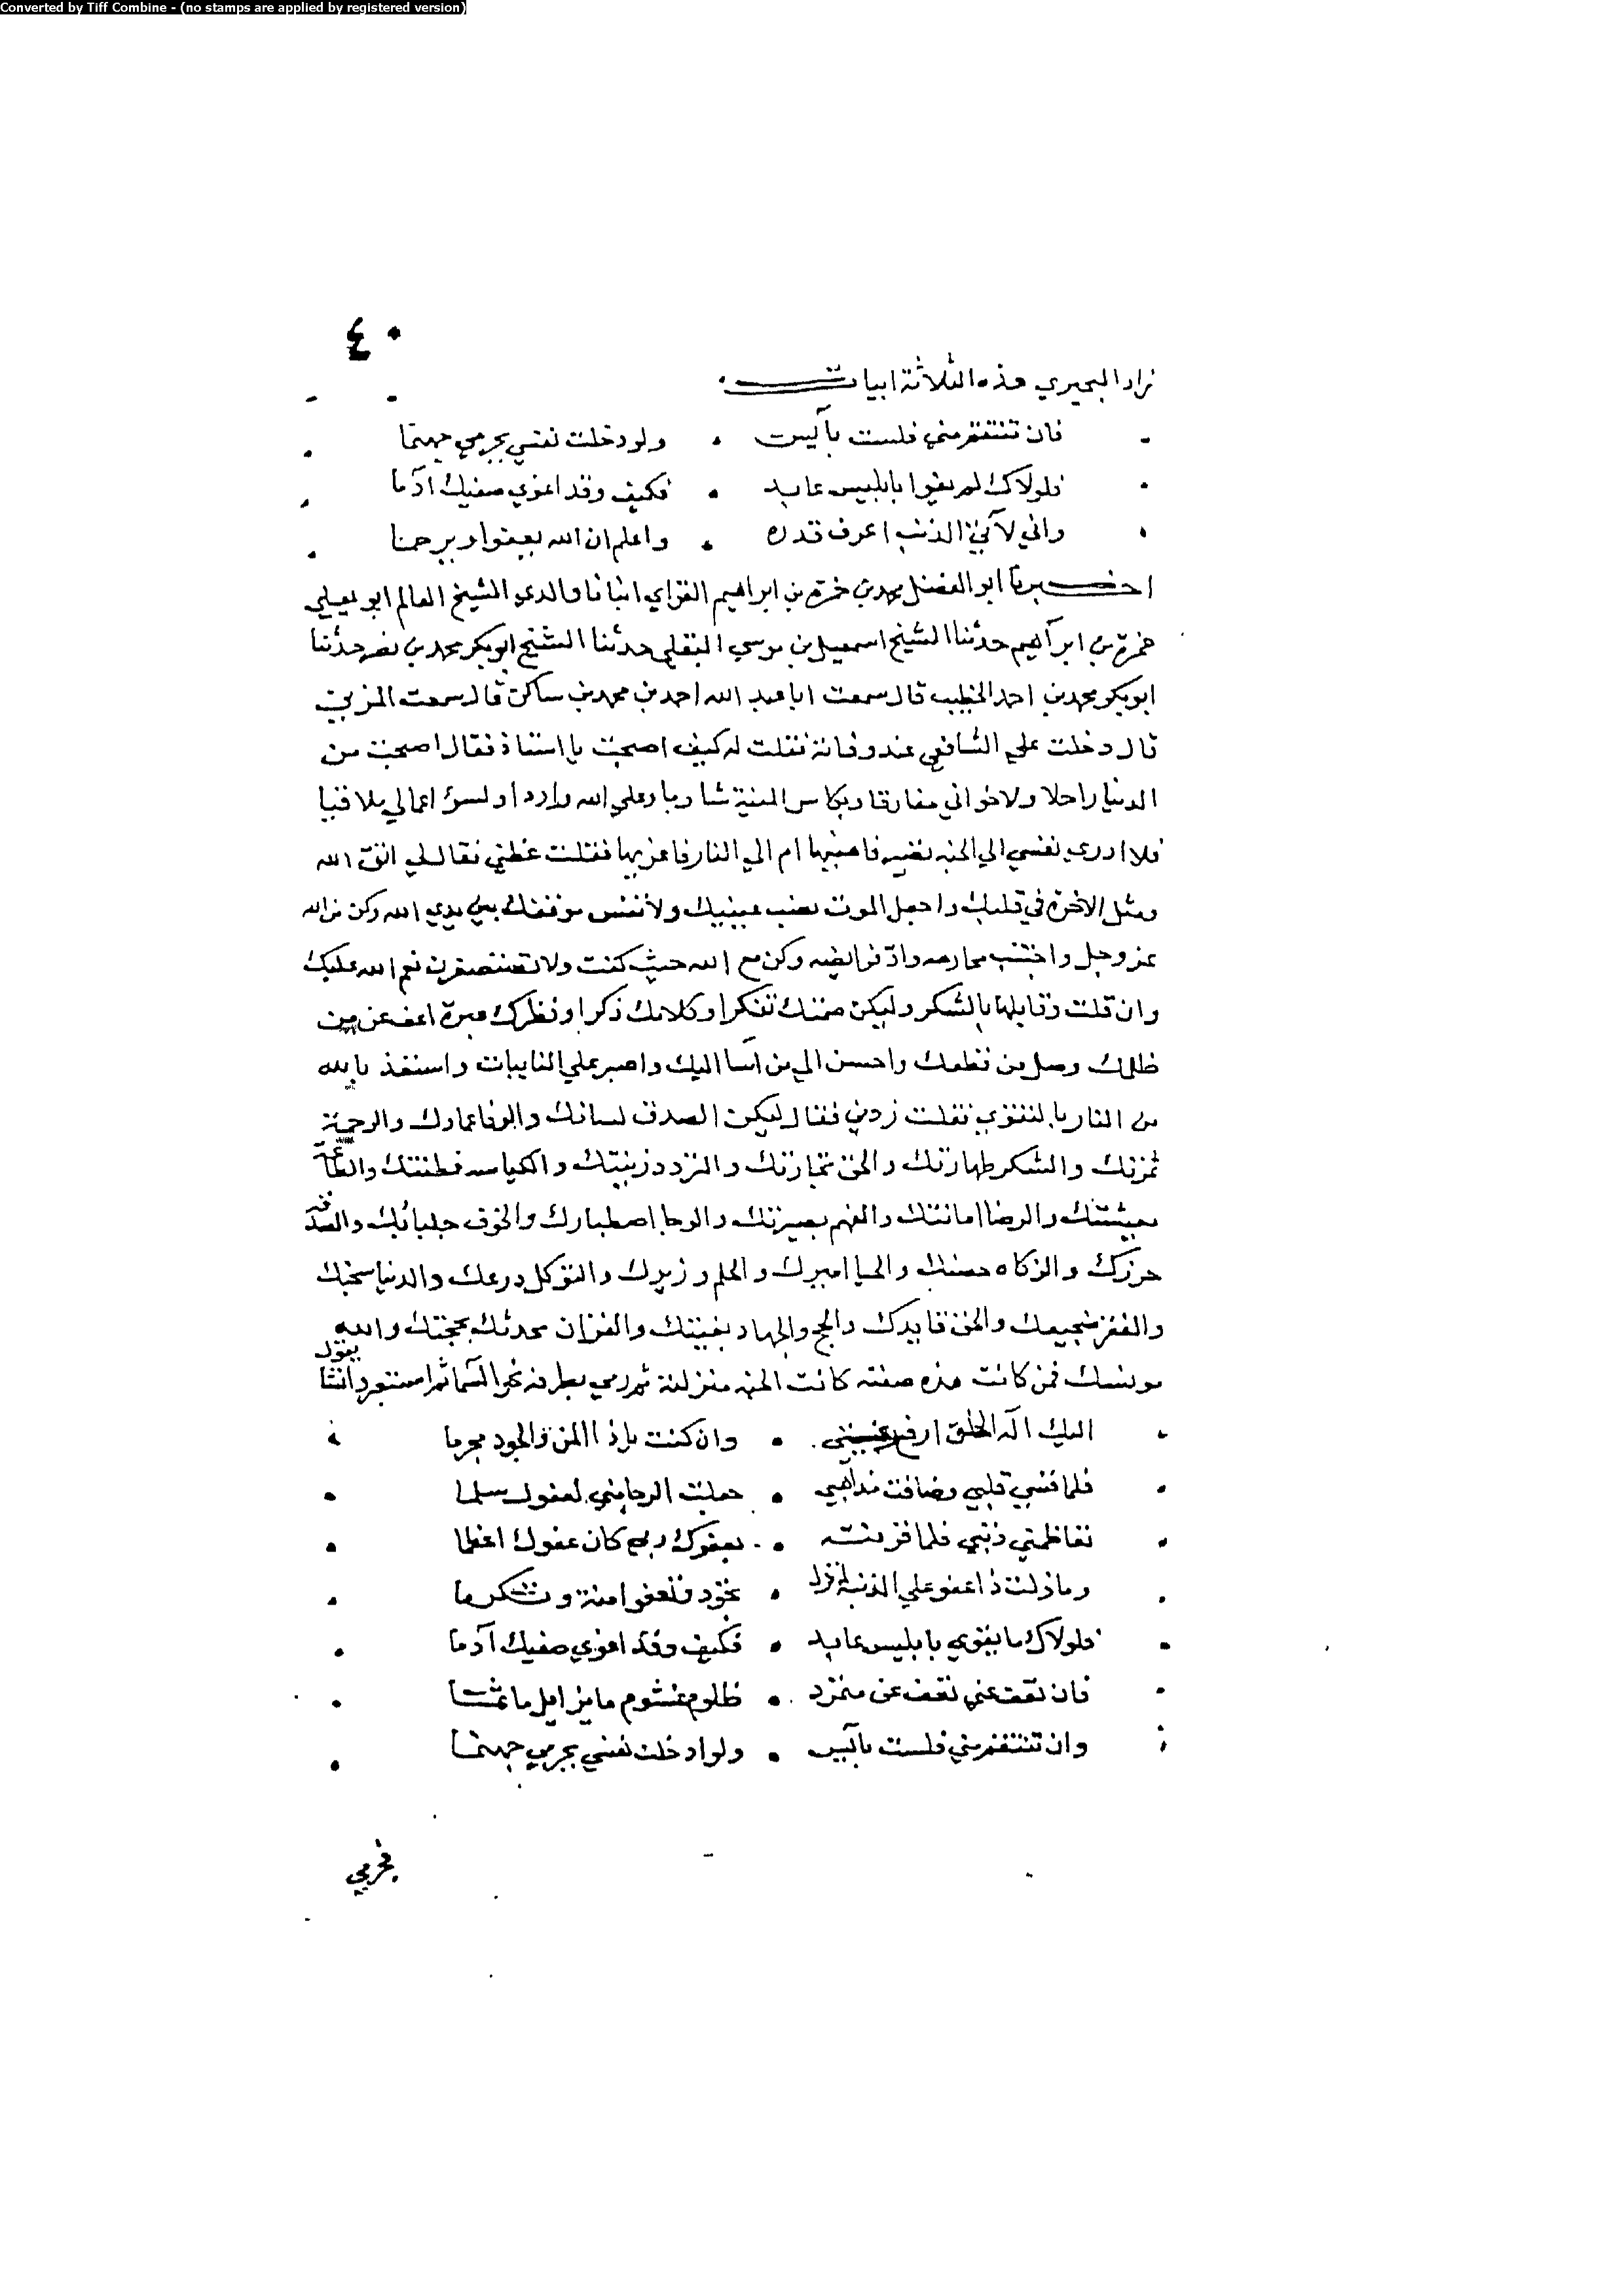 Converted by Tiff Combine - (no stamps are applied by registered version)
٤٠
زاد البحيري هذه الثلاثة ابيات
فان تنتقم مني فلست بآيس ولو دخلت نفسي بجرمي جهنما
فلولاك لم يغوا بابليس عابد فكيف وقد اغوي صفيك آدما
واني لآتي الذنب اعرف قدره واعلم ان الله يعفوا ويرحما
اخبرنا ابو الفضل محمد بن حمزة بن ابراهيم انبانا والدي الشيخ العالم ابو يعلي
حمزة بن ابراهيم حدثنا الشيخ اسمعيل بن موسي حدثنا الشيخ ابو بكر محمد بن نصر حدثنا
ابو بكر محمد بن احمد الخطيب قال سمعت ابا عبد الله احمد بن محمد بن ساكن قال سمعت المزني
قال دخلت علي الشافعي عند وفاته فقلت له كيف اصبحت يا استاذ فقال اصبحت من
الدنيا راحلا ولاخواني مفارقا وبكاس المنية شاربا وعلي الله واردا ولسؤ اعمالي ملاقيا
فلا ادري نفسي الي الجنه تصير فاهنيها ام الي النار فاعزيها فقلت عظني فقال لي اتق الله
ومثل الاخرة في قلبك واجعل الموت نصب عينيك ولا تنس موقفك بين يدي الله وكن من الله
عز وجل واجتنب محارمه واد فرايضه وكن مع الله حيث كنت ولا تستصغرن نعم الله عليك
وان قلت وقابلها بالشكر وليكن صمتك تفكرا وكلامك ذكرا ونظرك عبرة اعف عن من
ظلمك وصل من قطعك واحسن الي من اسا اليك واصبر علي النايبات واستعذ بالله
من النار بالتقوي فقلت زدني فقال ليكن الصدق لسانك والوفا عمادك والرحمة
ثمرتك والشكر طهارتك والحق تجارتك والتودد زينتك والكياسه فطنتك والطاعة
معيشتك والرضا امانتك والفهم بصيرتك والرجا اصطبارك والخوف جلبابك والصدقه
حرزك والزكاه حصنك والحيا اميرك والحلم وزيرك والتوكل درعك والدنيا سجنك
والفقر ضجيعك والحق قايدك والحج والجهاد بغيتك والقران محدثك بحجتك والله
مونسك فمن كانت هذه صفته كانت الجنه منزلته ثم رمي بطرفه نحو السما ثم استعبر وانشا يقول
اليك اله الخلق ارفع رغبتي وان كنت يا ذا المن والجود مجرما
فلما قسي قلبي وضاقت مذاهبي جعلت الرجا مني لعفوك سلما
تعاظمني ذنبي فلما قرنته بعفوك ربي كان عفوك اعظما
وما زلت ذا عفو علي الذنب لم تزل تجود وتعفو امنة وتكرما
فلولاك ما يغوي بابليس عابد فكيف وقد اغوي صفيك آدما
فان تعف عني تعف عن متمرد ظلوم غشوم ما يزايل ماثما
وان تنتقم مني فلست بآيس ولو ادخلت نفسي بجرمي جهنما
فجرمي